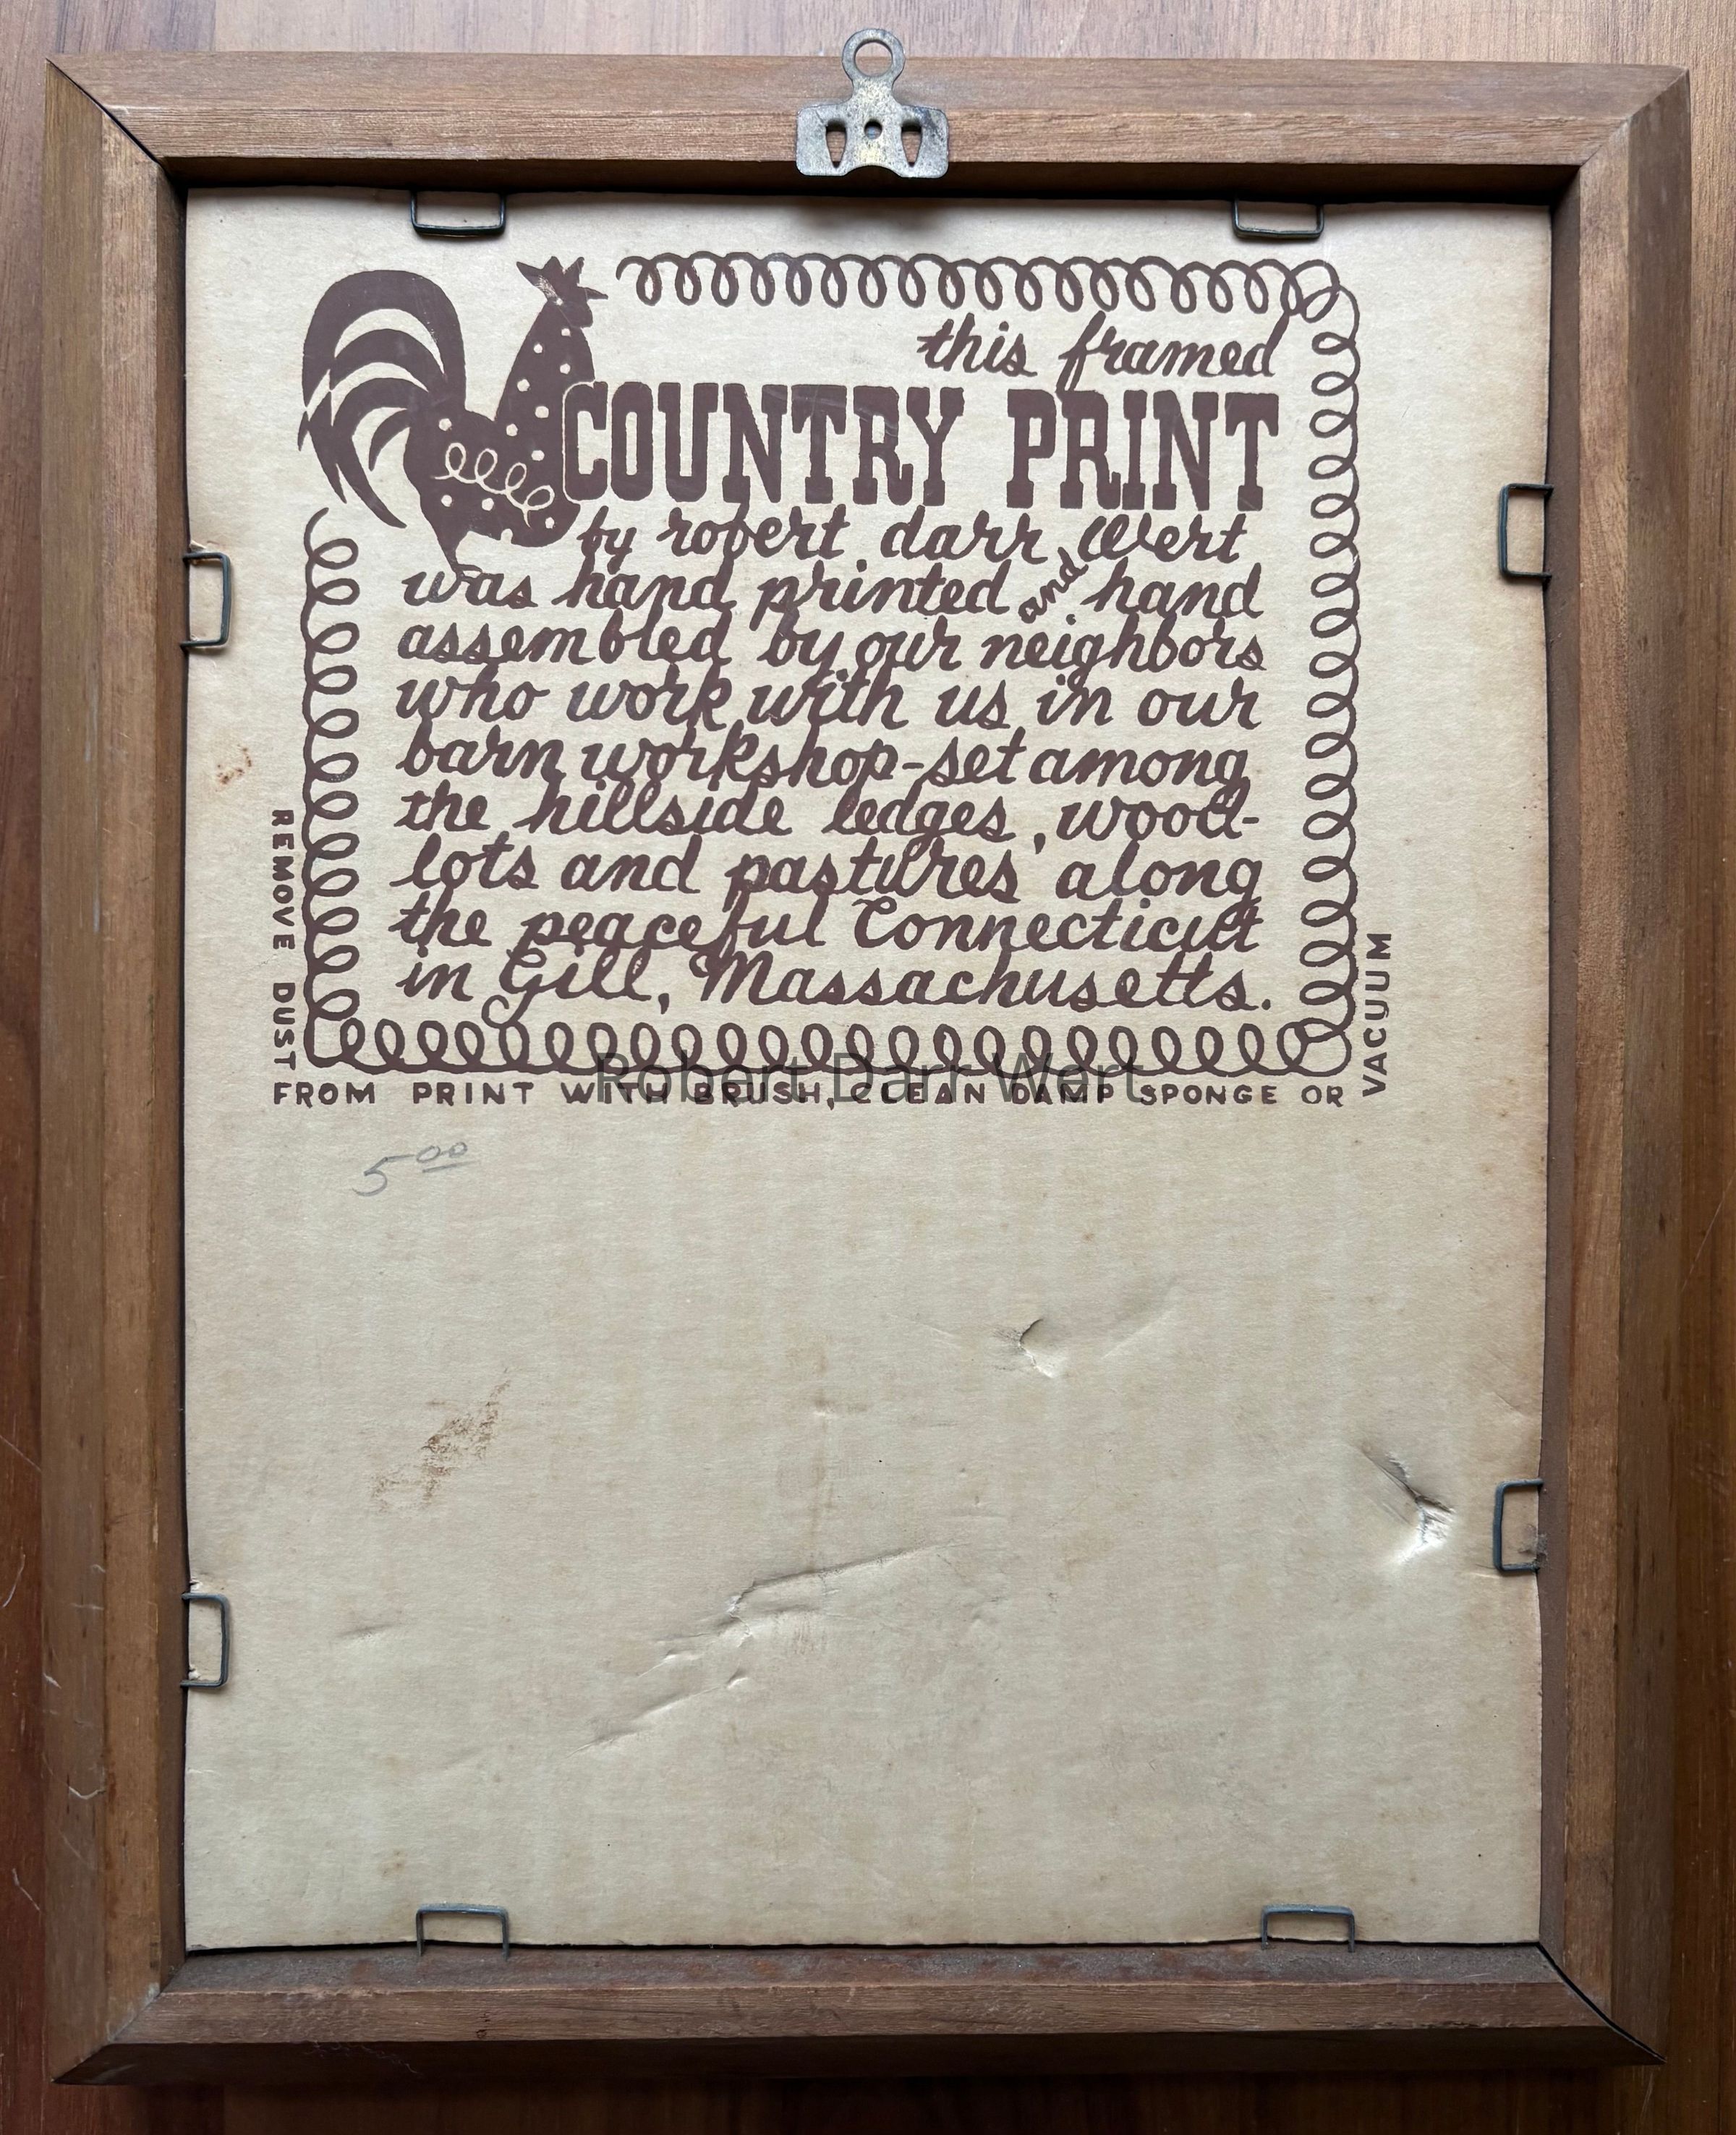 this framed
COUNTRY PRINT
by robert darr Wert
was hand printed and hand
assembled by our neighbors
who work with us in our
barn workshop-set among
the hillside ledges, wood-
lots and pastures along
the peaceful Connecticut
in Gill, Massachusetts.
REMOVE DUST
FROM PRINT WITH BRUSH, CLEAN DAMP SPONGE OR
VACUUM
Robert Darr Wert
5 00